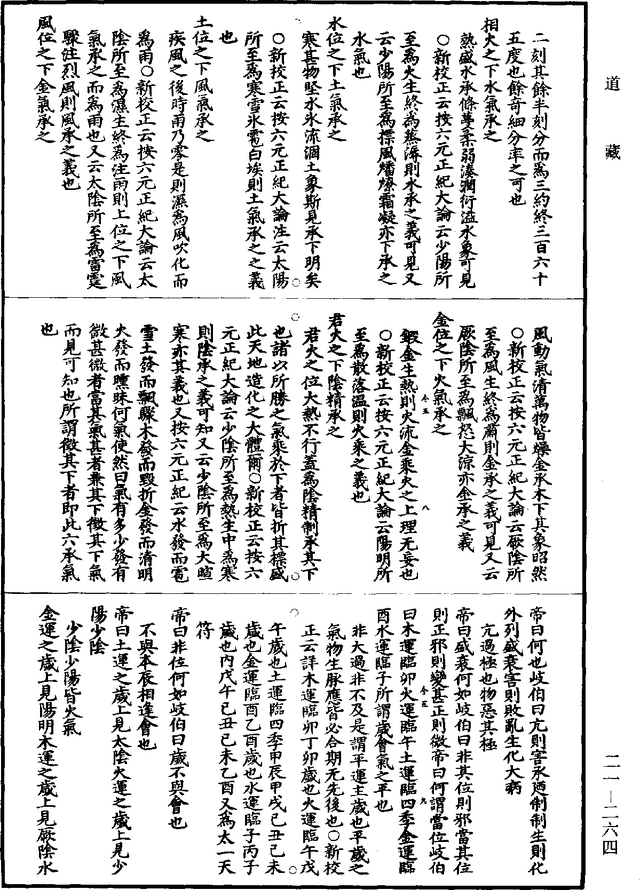 道藏
二刻其餘半刻分而爲三約終三百六十
五度也餘竒細分率之可也
相火之下水氣承之
熱盛水承條蔓柔弱湊潤衍溢水象可見
○新校正云按六元正紀大論云少陽所
至爲火生終爲蒸溽則水承之義可見又
云少陽所至爲摽風燔燎霜凝亦下承之
水氣也
水位之下土氣承之
寒甚物堅水氷流涸土象斯見承下明矣
○新校正云按六元正紀大論注云太陽
所至爲寒雪氷雹白埃則土氣承之之義
也
土位之下風氣承之
疾風之後時雨乃零是則濕爲風吹化而
爲雨○新校正云按六元正紀大論云太
陰所至爲濕生終爲注雨則上位之下風
氣承之而爲雨也又云太陰所至爲雷霆
驟注烈風則風承之義也
風位之下金氣承之
風動氣清萬物皆燥金承木下其象昭然
○新校正云按六元正紀大論云厥陰所
至爲風生終爲肅則金承之義可見又云
厥陰所至爲飄怒大凉亦金承之義
金位之下火氣承之
鍜金生熱則火流金乘火之上理无妄也
○新校正云按六元正紀大論云陽明所
至爲散落温則火乘之義也
君火之下陰精承之
君火之位大熱不行蓋爲陰精制承其下
也諸以所勝之氣乘於下者皆折其摽盛
此天地造化之大體爾○新校正云按六
元正紀大論云少陰所至爲熱生中爲寒
則陰承之義可知又云少陰所至爲大暄
寒亦其義也又按六元正紀云水發而雹
雪土發而飄驟木發而毀折金發而清明
火發而曛昧何氣使然曰氣有多少發有
微甚微者當其氣甚者兼其下徵其下氣
而見可知也所謂徵其下者即此六承氣
也
帝曰何也岐伯曰亢則害承廼制制生則化
外列盛衰害則敗亂生化大病
亢過極也物惡其極
帝曰盛衰何如岐伯曰非其位則邪當其位
則正邪則變甚正則微帝曰何謂當位岐伯
曰木運臨卯火運臨午土運臨四季金運臨
酉水運臨子所謂歲會氣之平也
非大過非不及是謂平運主歲也平歲之
氣物生脉應皆必合期无先後也○新校
正云詳木運臨卯丁卯歲也火運臨午戊
午歲也土運臨四季甲辰甲戌己丑己未
歲也金運臨酉乙酉歲也水運臨子丙子
歲也内戊午己丑己未乙酉又爲太一天
符
帝曰非位何如岐伯曰歲不與會也
不與本辰相逢會也
帝曰土運之歲上見太陰火運之歲上見少
陽少陰
少陰少陽皆火氣
金運之歲上見陽明木運之歲上見厥陰水
二一—二六四